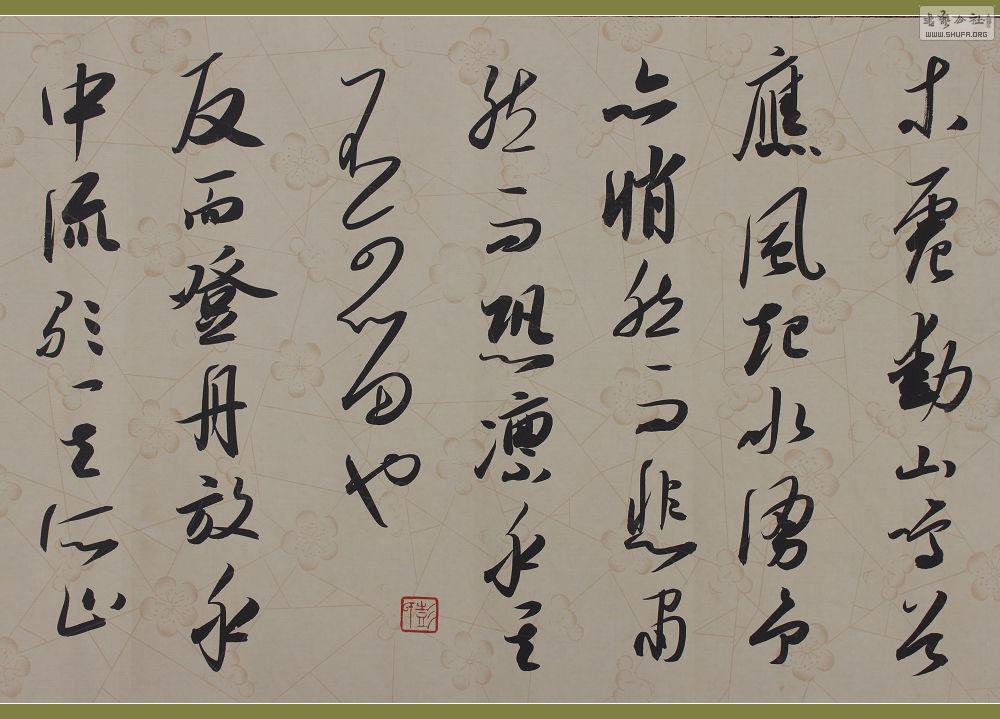 木震動山鳴谷
應風起水湧予
亦悄然而悲肅
然而恐凛乎其
不可留也
反而登舟放乎
中流聽其所止
書藝公社
WWW.SHUFA.ORG